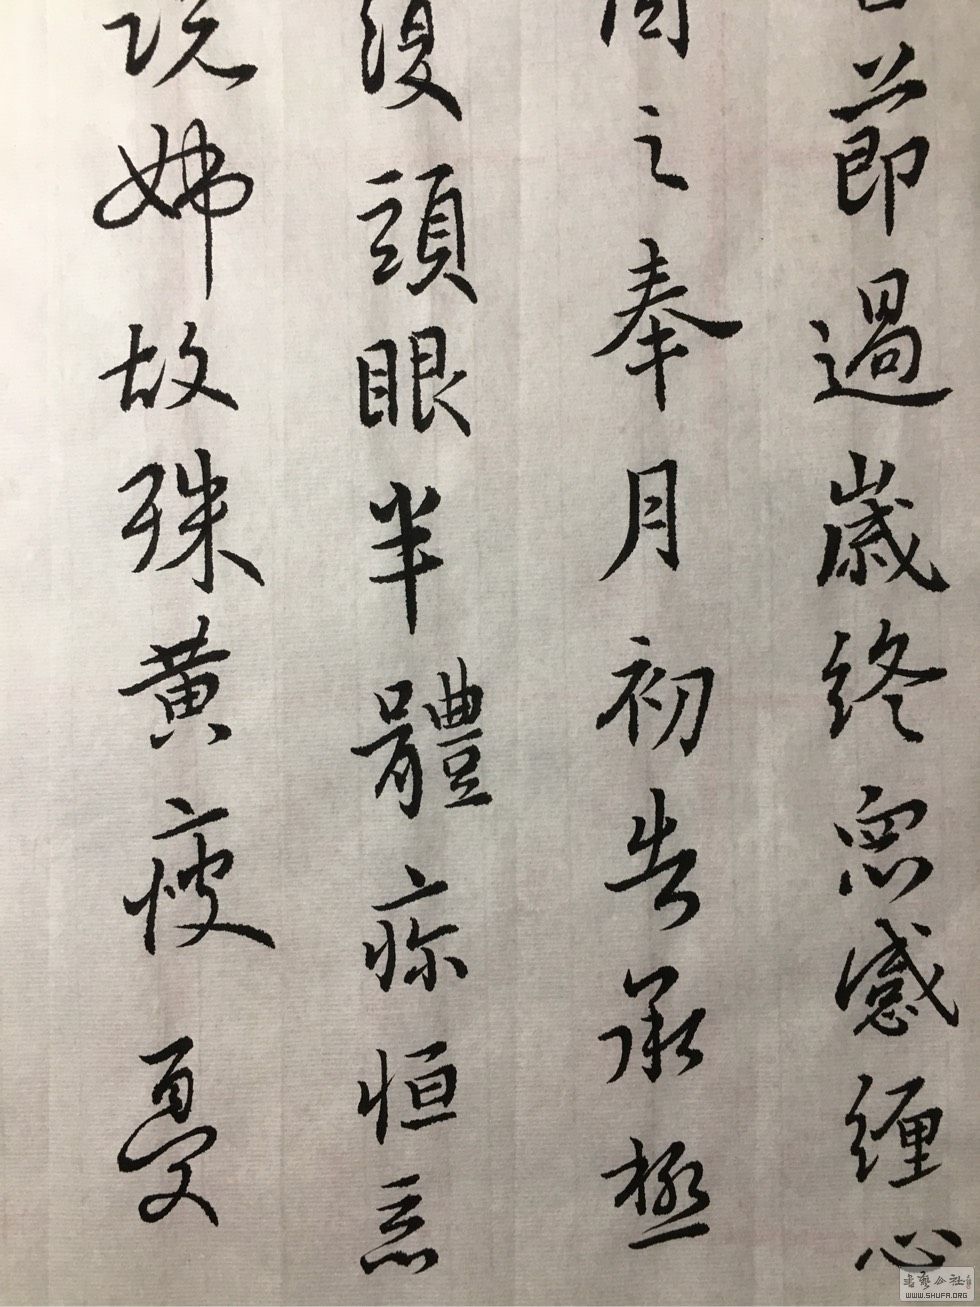 節過歲終眾感纏心
之奉月初告承極
復頭眼半體疼恒惡
說姊故殊黃瘦憂
書藝公社
WWW.SHUFA.ORG